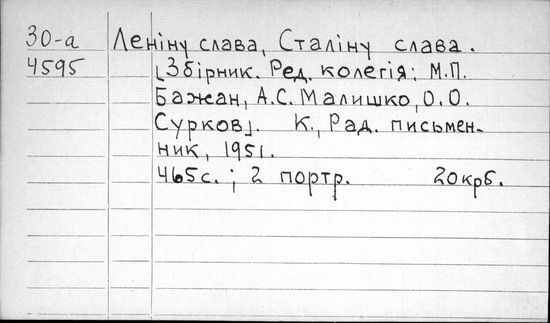 30-а Леніну слава, Сталіну слава.
4595 [Збірник. Ред. колегія: М.П.
Бажан, А.С. Малишко, О.О.
Сурков]. К., Рад. письмен-
ник, 1951.
465с.; 2 портр. 20крб.